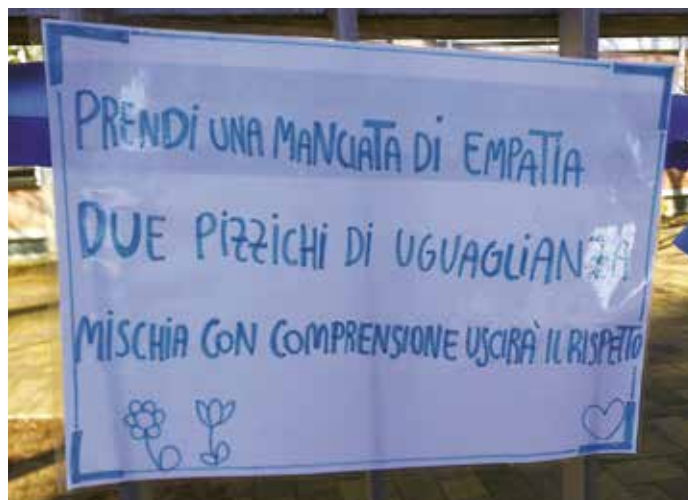 PRENDI UNA MANCIATA DI EMPATIA
DUE PIZZICHI DI UGUAGLIANZA
MISCHIA CON COMPRENSIONE USCIRÀ IL RISPETTO